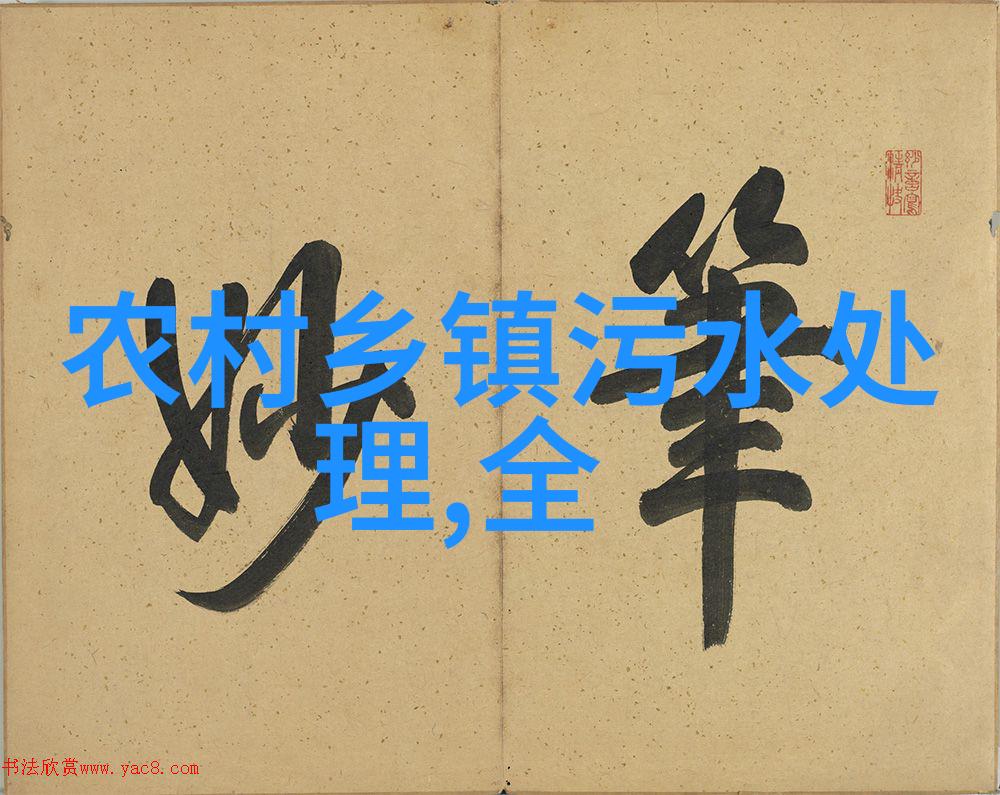 妙筆
农村乡镇污水处
理,全
书法欣赏www.yac8.com